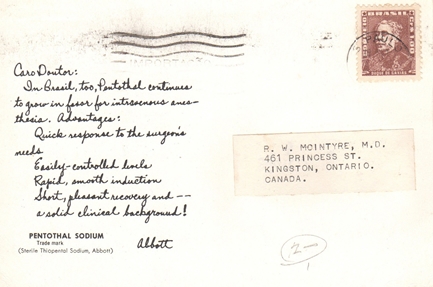 Caro Doutor:
In Brasil, too, Pentothal continues
to grow in favor for intravenous anes-
thesia. Advantages:
Quick response to the surgeon's
needs
Easily-controlled levels
Rapid, smooth induction
Short, pleasant recovery and --
a solid clinical background!
PENTOTHAL SODIUM
Trade mark
(Sterile Thiopental Sodium, Abbott)
Abbott
CORREIO BRASIL CR$ 1,00
DUQUE DE CAXIAS
R. W. MCINTYRE, M.D.
461 PRINCESS ST.
KINGSTON, ONTARIO.
CANADA.
2-